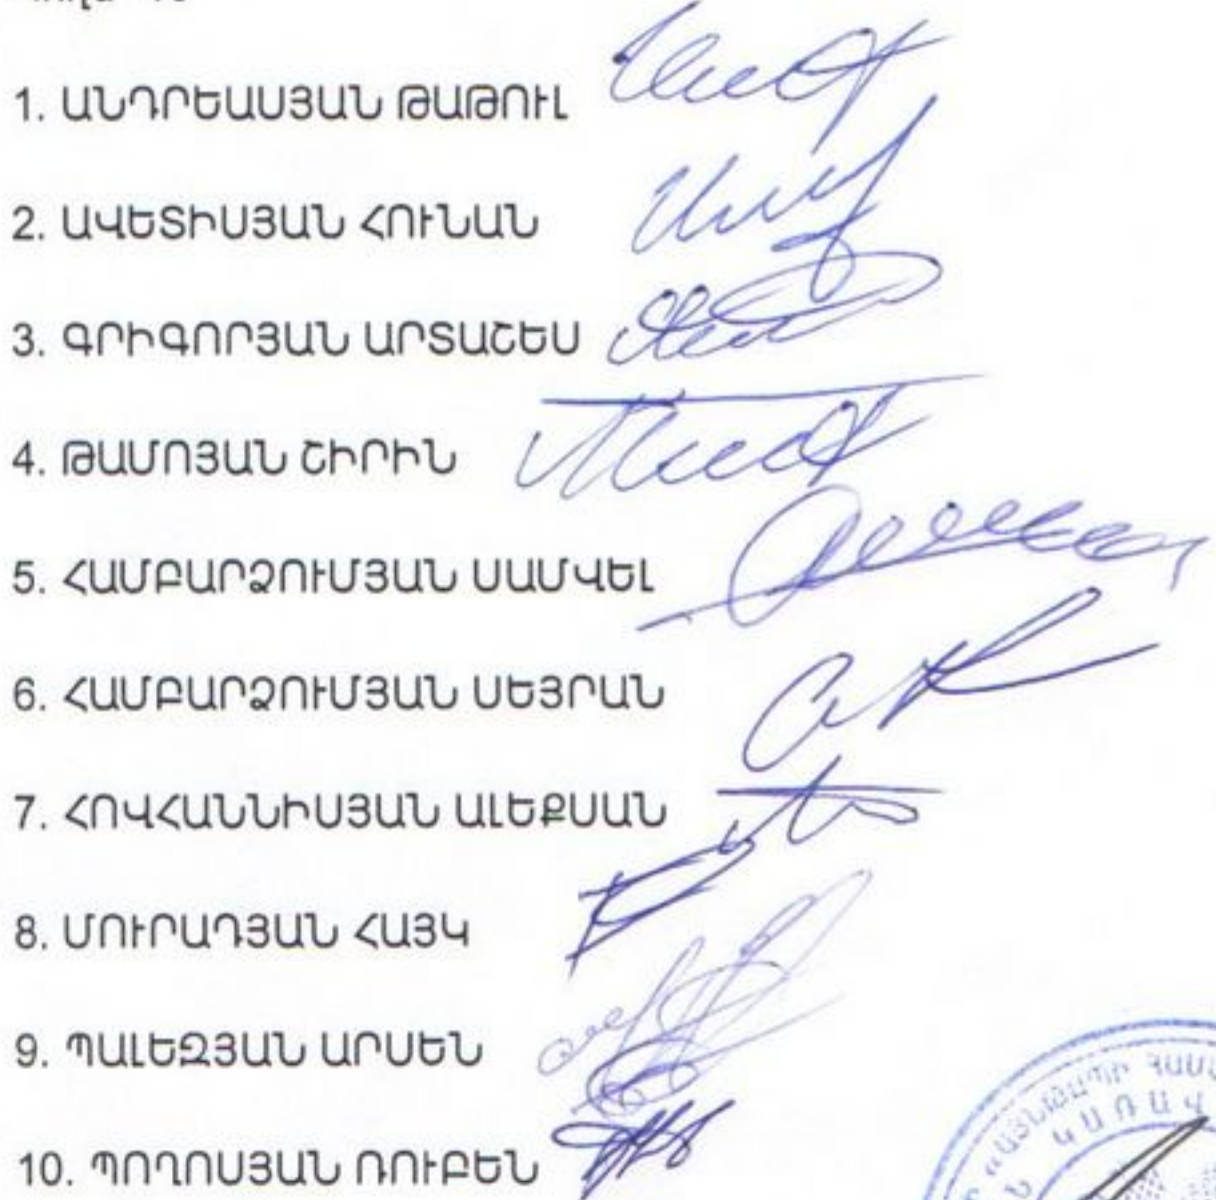 1. ԱՆԴՐԵԱՍՅԱՆ ԹԱԹՈՒԼ
2. ԱՎԵՏԻՍՅԱՆ ՀՈՒՆԱՆ
3. ԳՐԻԳՈՐՅԱՆ ԱՐՏԱՇԵՍ
4. ԹԱՄՈՅԱՆ ՇԻՐԻՆ
5. ՀԱՄԲԱՐՁՈՒՄՅԱՆ ՍԱՄՎԵԼ
6. ՀԱՄԲԱՐՁՈՒՄՅԱՆ ՍԵՅՐԱՆ
7. ՀՈՎՀԱՆՆԻՍՅԱՆ ԱԼԵՔՍԱՆ
8. ՄՈՒՐԱԴՅԱՆ ՀԱՅԿ
9. ՊԱԼԵԶՅԱՆ ԱՐՍԵՆ
10. ՊՈՂՈՍՅԱՆ ՌՈՒԲԵՆ